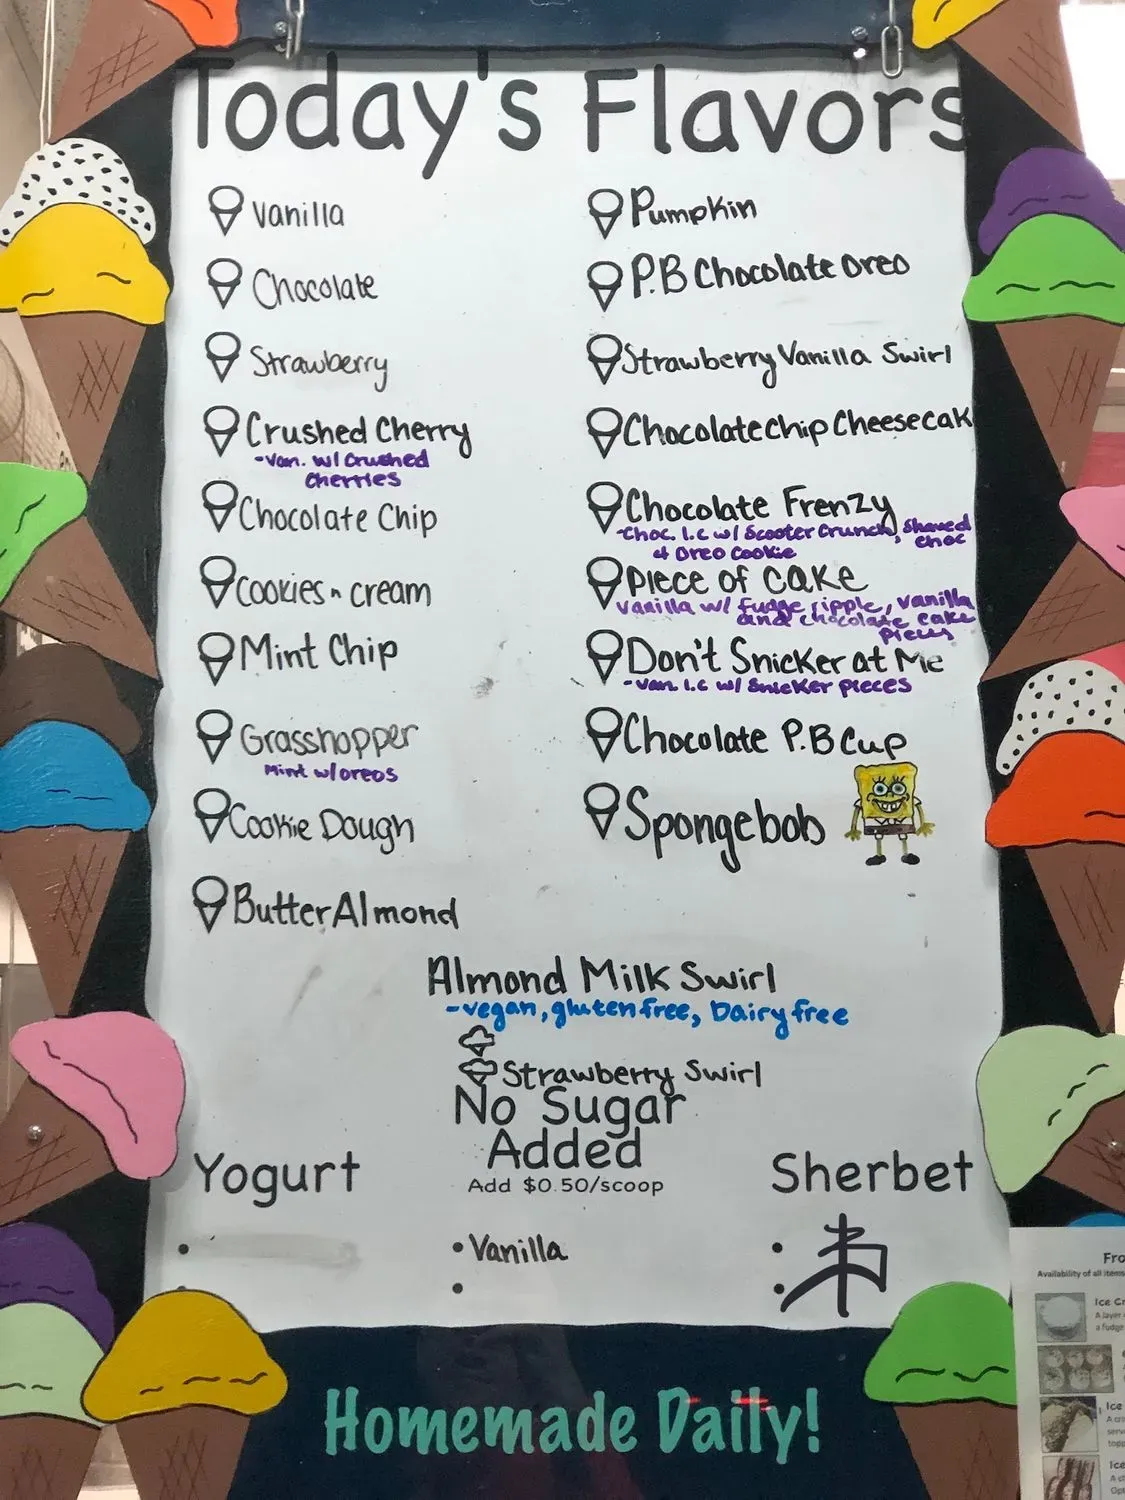 Today's Flavors
Vanilla
Chocolate
Strawberry
Crushed Cherry
-Van. w/ Crushed
Cherries
Chocolate Chip
Cookies n cream
Mint Chip
Grasshopper
Mint w/oreos
Cookie Dough
Butter Almond
Pumpkin
P.B Chocolate Oreo
Strawberry Vanilla Swirl
Chocolate Chip Cheesecak
Chocolate Frenzy
-Choc. I.C w/ Scooter Crunch, Shaved
choc
& Oreo Cookie
Piece of cake
vanilla w/ fudge ripple, vanilla
and chocolate cake
pieces
Don't Snicker at Me
-Van. I.C w/ Snicker pieces
Chocolate P.B Cup
Spongebob
Almond Milk Swirl
-vegan, gluten free, Dairy free
Strawberry Swirl
No Sugar
Added
Add $0.50/scoop
• Vanilla
•
Yogurt
•
Sherbet
•
•
Homemade Daily!
Fro
Availability of all items
Ice Cr
A layer
a fudge
Ice
A cri
serv
topp
Ice
A c
Opt